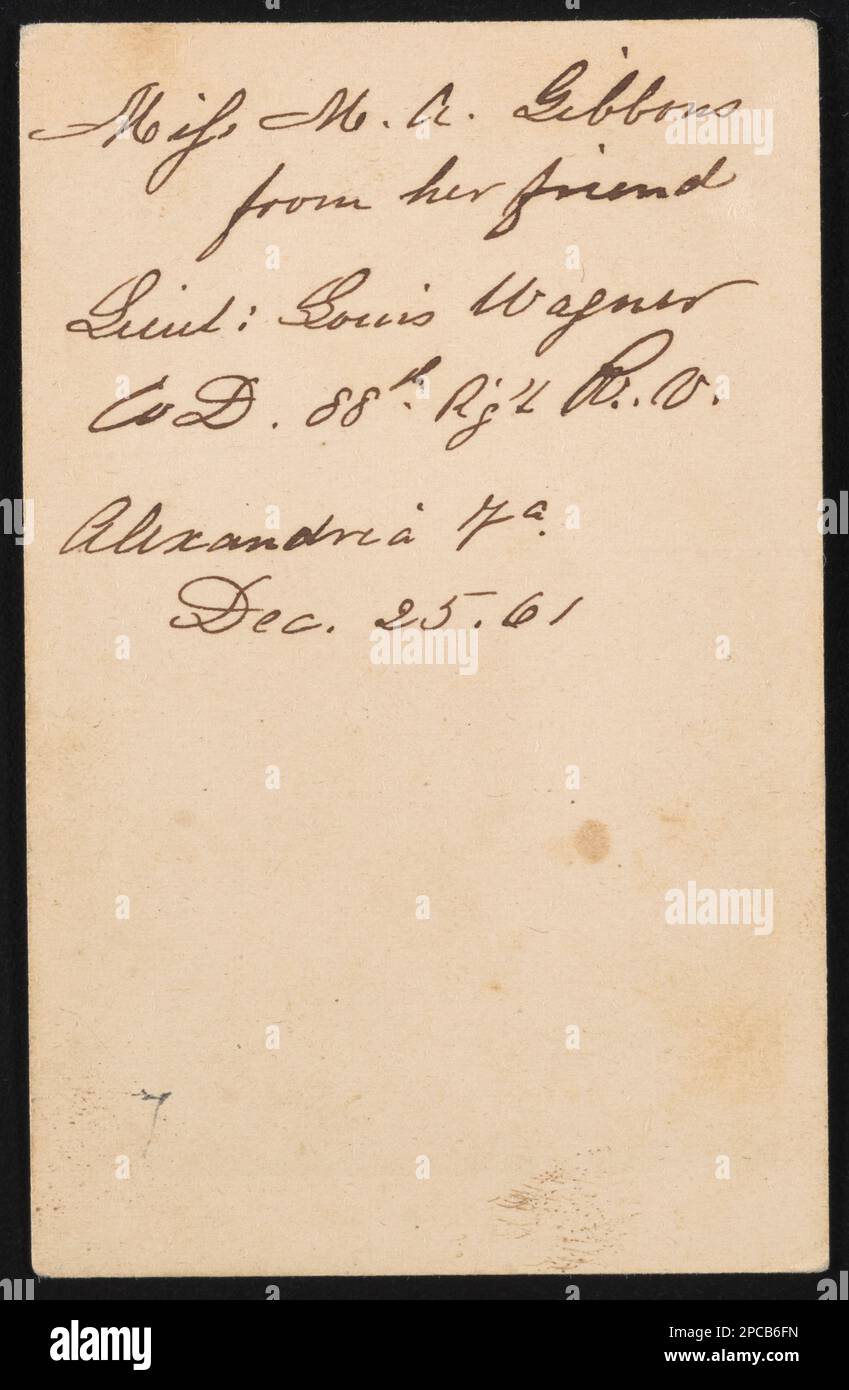 Miss M. A. Gibbons
from her friend
Lieut: Louis Wagner
Co D. 88th. Rg't P. V.
Alexandria Va.
Dec. 25. 61
7
alamy
Image ID: 2PCB6FN
www.alamy.com